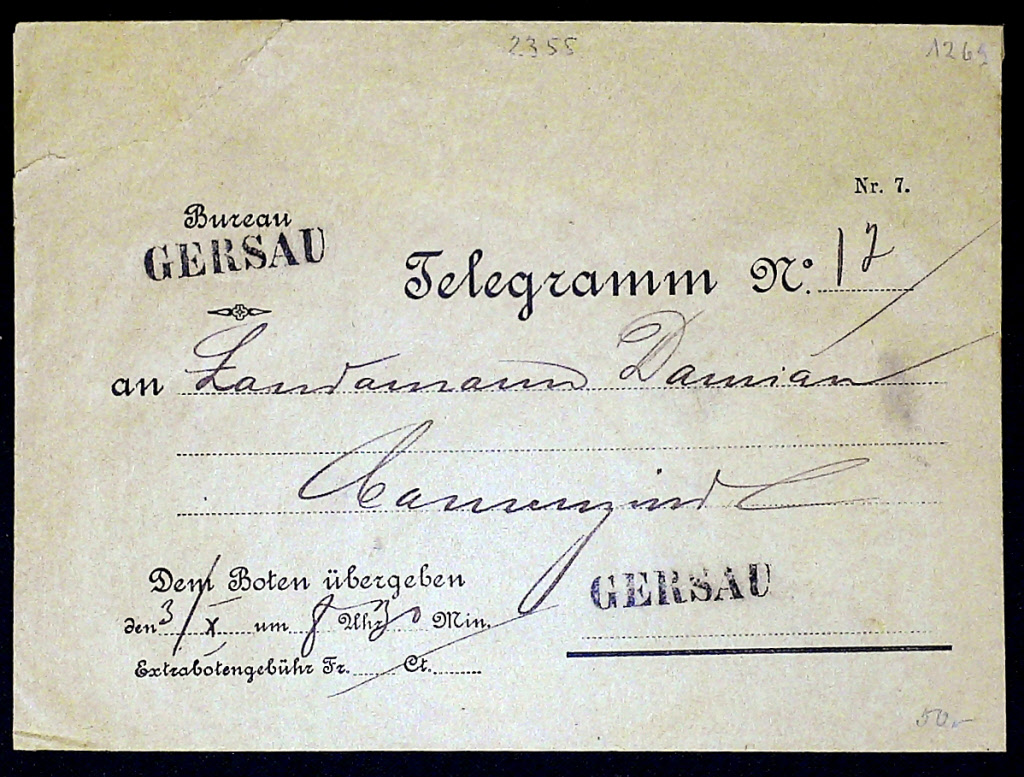 2355
1269
Nr. 7.
Bureau
GERSAU
Telegramm No. 17
an Landamann Damian
Camenzind
Dem Boten übergeben
GERSAU
den 3/X um 8 Uhr 30 Min.
Extrabotengebühr Fr. Ct.
50.-